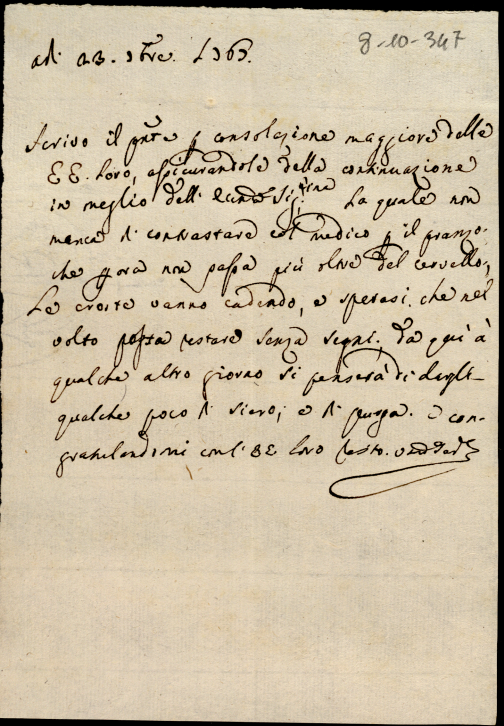 8-10-347
adì 23. 9bre. 1763.
Scrivo il pnte p consolazione maggiore delle
EE. Loro, assicurandole della continuazione
in meglio dell' Sig.rina La quale non
manca di contrastare col medico p il pranzo
che p ora non passa più oltre del cervello;
Le croste vanno cadendo, e sperasi che nel
volto possa restare senza segni; da qui à
qualche altro giorno si penserà di dargli
qualche poco di siero; e di purga. E con-
gratulandomi con l' EE Loro resto.